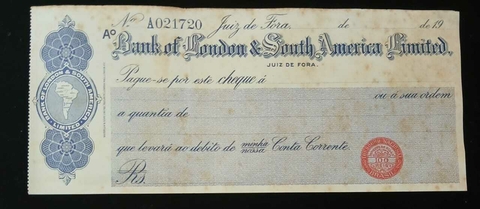 Nº A021720 Juiz de Fora, de de 19
Ao Bank of London & South America Limited.
JUIZ DE FORA.
Pague-se por este cheque á
ou á sua ordem
a quantia de
que levará ao debito de minha nossa Conta Corrente.
Rs.
BANK OF LONDON & SOUTH AMERICA LIMITED